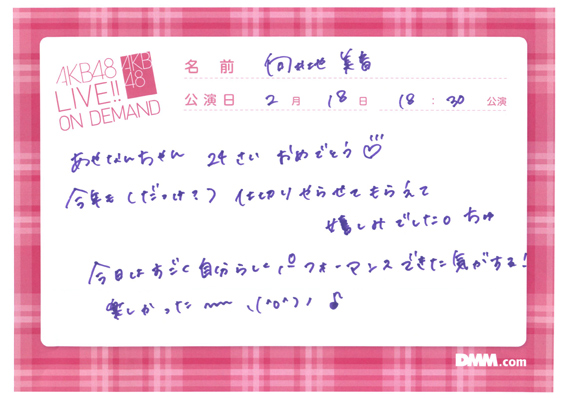 AKB48
LIVE!!
ON DEMAND
AKB
48
名前 向井地 美音
公演日 2月 18日 18:30 公演
ちゃん 24さい おめでとう♡
今年も(だっけ?) 仕切りやらせてもらえて
嬉しみでした。
今日はすごく自分らしくパフォーマンスできた気がする!
楽しかった〜〜 \(^o^)/ ♪
DMM.com